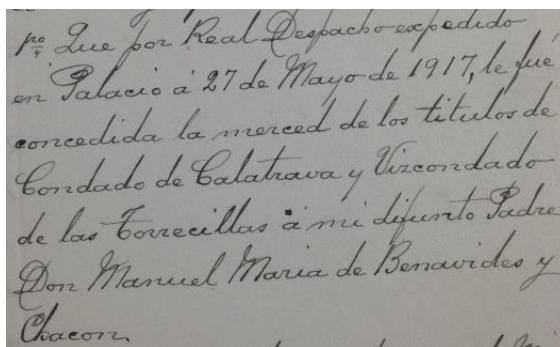 pº Que por Real Despacho expedido
en Palacio á 27 de Mayo de 1917, le fué
concedida la merced de los titulos de
Condado de Calatrava y Vizcondado
de las Torrecillas á mi difunto Padre
Don Manuel Maria de Benavides y
Chacon.